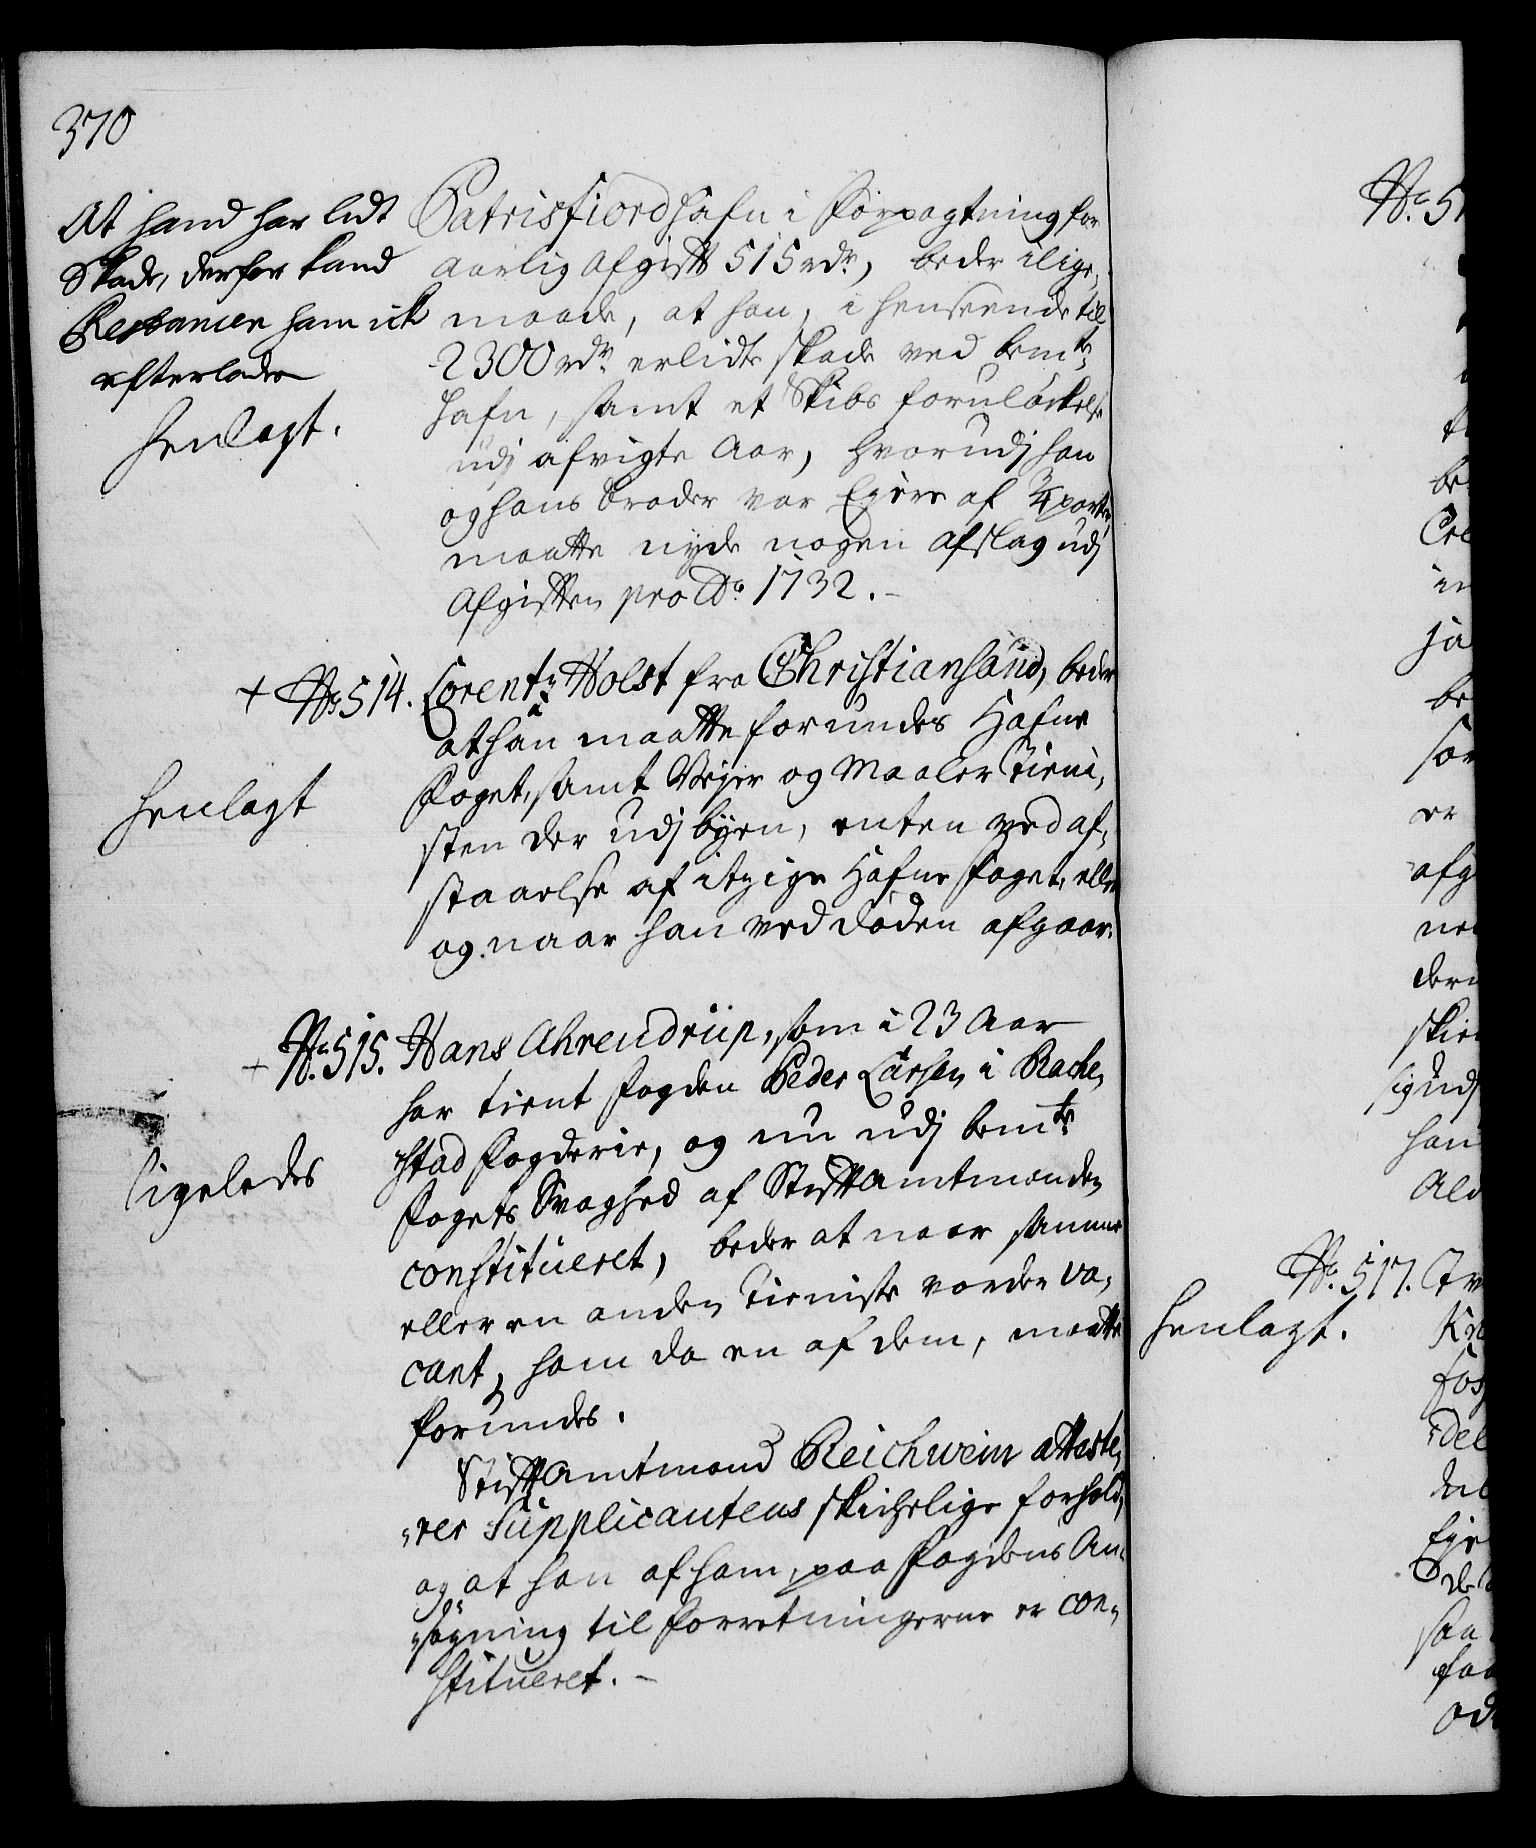 370
At hand har lidt
Skade, derfor kand
Restancen ham ick
efterlades
henlagt.
Patrisfiord hafn i Forpagtning for
aarlig Afgift 515 rdr, beder ilige,
maade, at han, i henseende til
2300 rdr erlidte skade ved bemte
hafn, samt et Skibs foruløckelse
udj afvigte Aar, hvorudj han
og hans broder var Ejere af 3/4 parter,
maatte nyde nogen afslag udj
Afgiften pro Ao 1732.-
+ No 514. Lorentz Holst fra Christiansand, beder
at han maatte forundes Hafne
Foget, samt Vejer og Maaler Tieni,
sten der udj byen, enten ved af,
staaelse af itzige Hafne Foget, eller
og naar han ved døden afgaar.
henlagt
+ No 515. Hans Ahrendrup, som i 23 Aar
har tient Fogden Peder Larsen i Rache,
stad Fogderie, og nu udj bemte
Fogets Svaghed af Stiftamtmanden
constitueret, beder at naar samme
eller en anden Tieniste vorder va,
cant, ham da en af dem, maatte
forundes.
ligeledes
Stiftamtmand Reichwein atteste,
rer Supplicantens skichelige forhold,
og at han af ham, paa Fogdens An,
søgning til Forretningerne er con,
stitueret.-
No 51
No. 517.
henlagt.